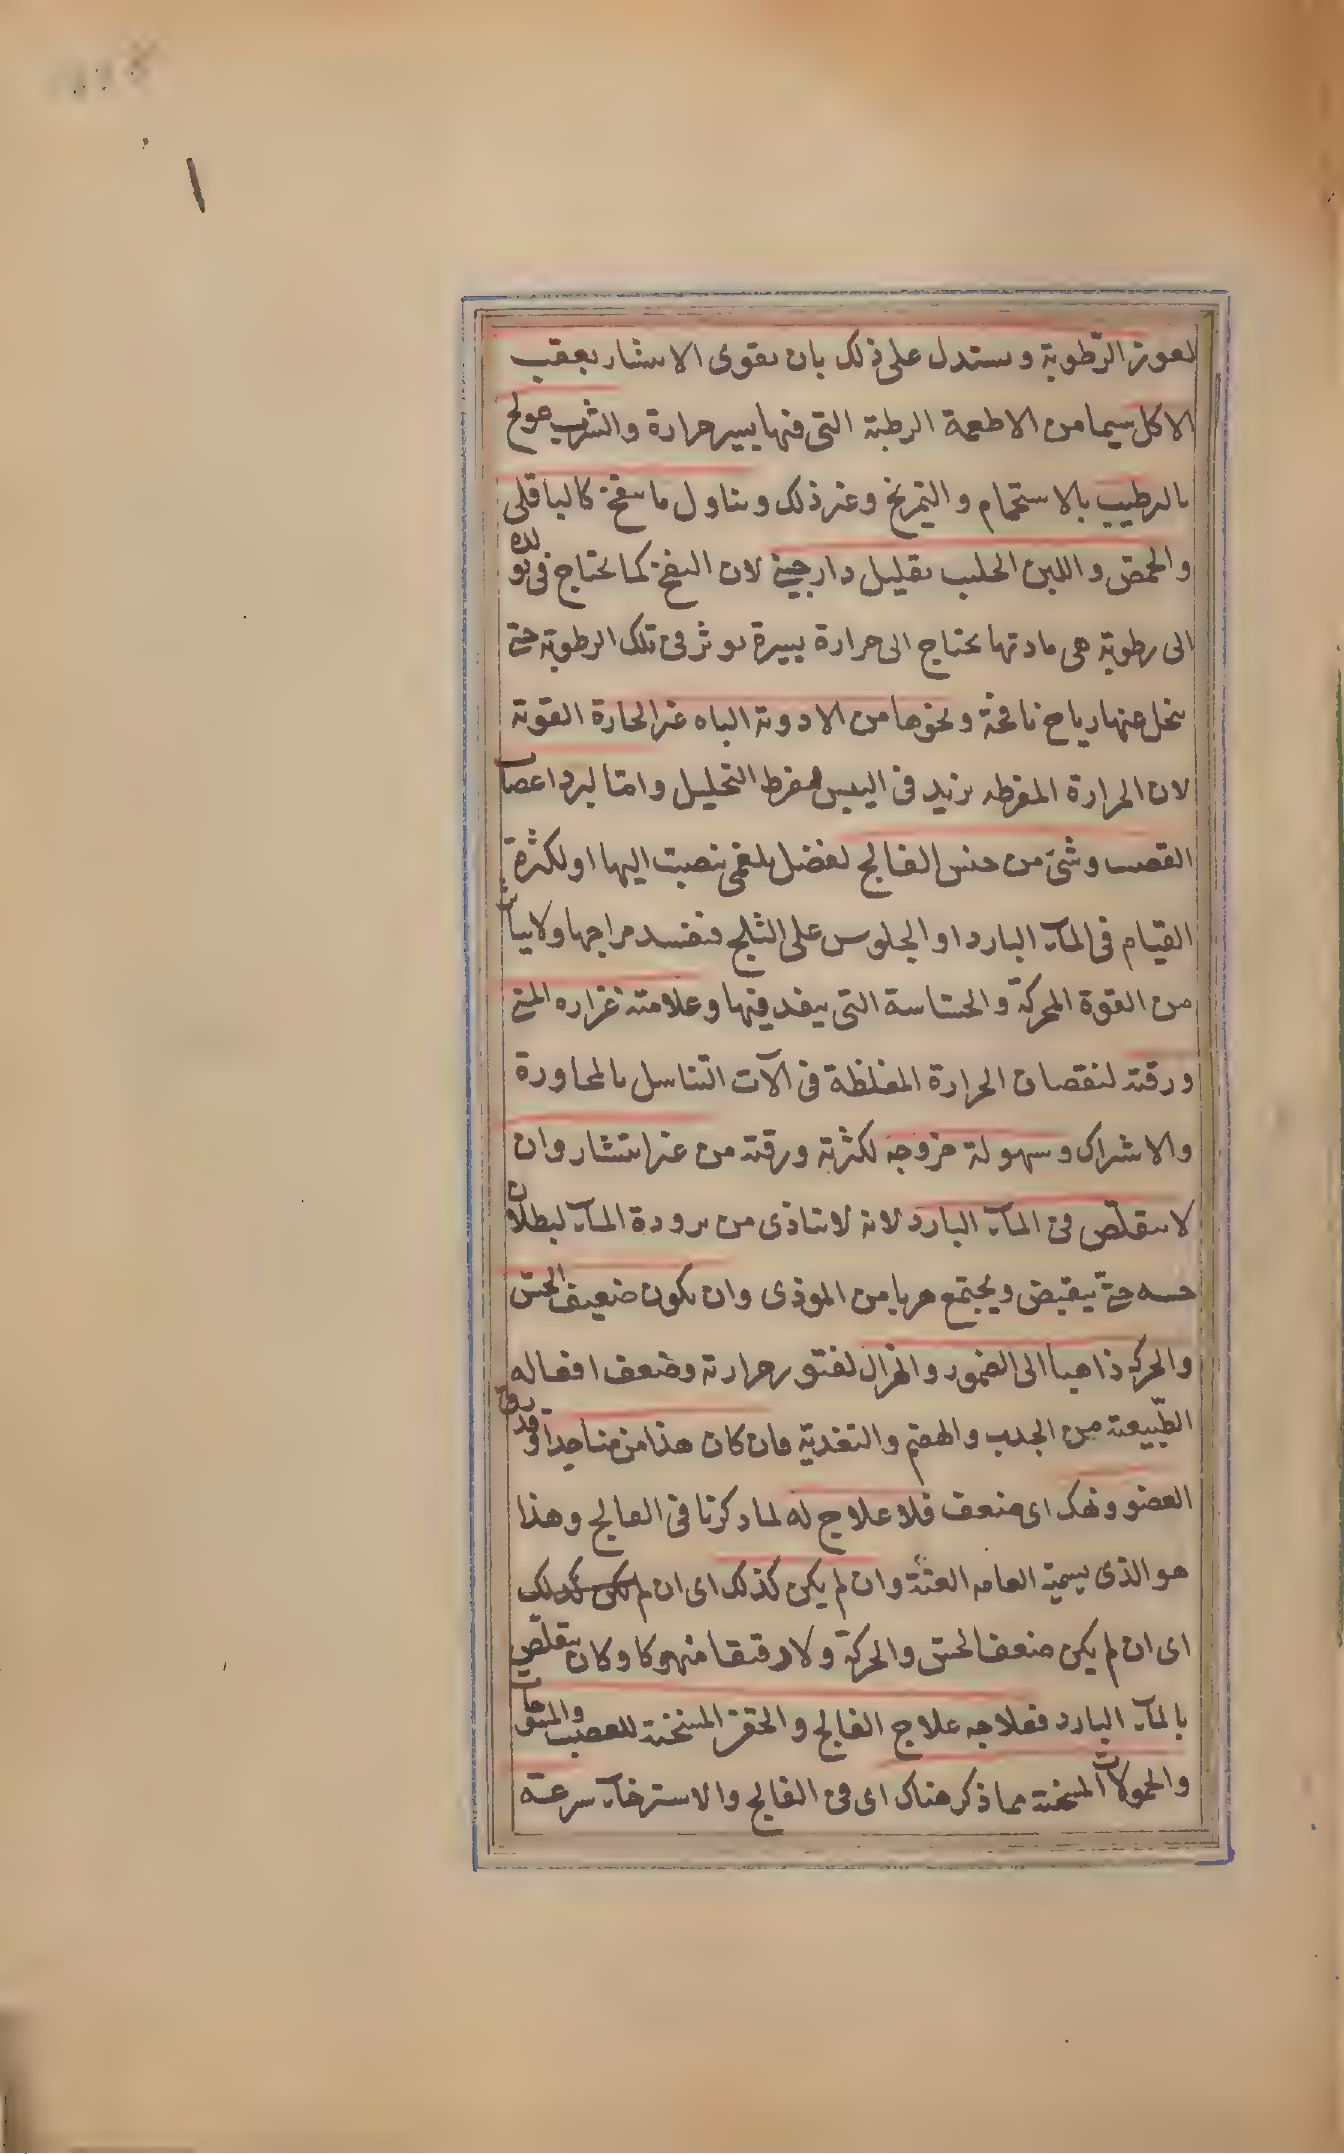 لعوز الرّطوبة ويستدل على ذلك بان يقوى الانتشار بعقب
الاكل سيما من الاطعمة الرطبة التى فيها يسير حرارة والشرب عولج
بالترطيب بالاستحمام والتمريخ وغير ذلك وبتناول ما ينفخ كالباقلى
والحمص واللبن الحليب بقليل دارچينى لان النفخ كما يحتاج فى تولده
الى رطوبة هى مادتها يحتاج الى حرارة يسيرة توثر فى تلك الرطوبة حتى
ينحل عنها رياح نافخة ونحوها من الادوية الباه غير الحارة القوية
لان الحرارة المفرطه تزيد فى اليبس لفرط التحليل وامّا لبرد اعصاب
القضيب وشئ من جنس الفالج لفضل بلغمى ينصبّ اليها او لكثرة
القيام فى المآء البارد او الجلوس على الثلج فيفسد مزاجها ولا يتاثر
من القوة المحركة والحسّاسة التى ينفد فيها وعلامته غزاره المنى
ورقته لنقصان الحرارة المغلظة فى آلات التناسل بالمجاورة
والاشراك وسهولة خروجه لكثرته ورقته من غير انتشار وان
لا يتقلّص فى المآء البارد لانه لا يتاذى من برودة المآء لبطلان
حسه حتّى ينقبض ويجتمع هربا من الموذى وان يكون ضعيف الحسّ
والحركه ذاهبا الى الضمور والهزال لفتور حرارته وضعف افعاله
الطّبيعية من الجذب والهضم والتغذية فان كان هذا مزمنا جدا وقد دق
العضو ونهك اى ضعف فلا علاج له لما ذكرنا فى الفالج وهذا
هو الذى يسميه العامه العنّة وان لم يكن كذلك اى ان لم يكن كذلك
اى ان لم يكن ضعف الحسّ والحركة ولا دقيقا منهوكا وكان يتقلّص
بالمآء البارد فعلاجه علاج الفالج والحقن المسخنة للعصب والمسوحات
والحمولات المسخنة مما ذكر هناك اى فى الفالج والاسترخآء سرعة